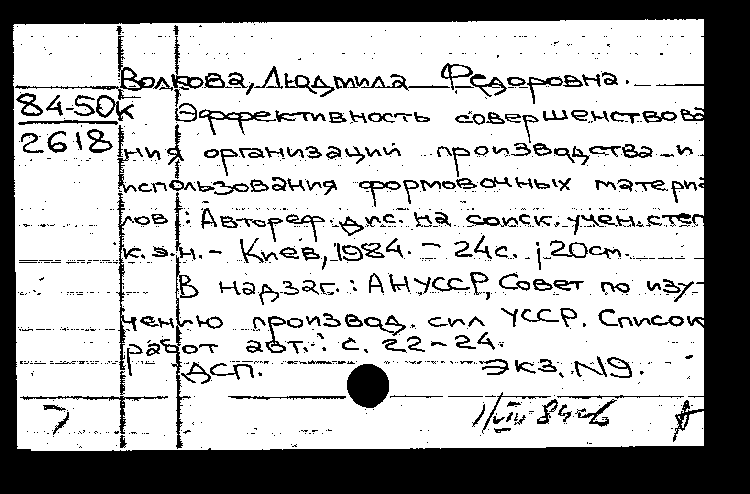 Волкова, Людмила Федоровна.
84-50к Эффективность совершенствова
2618
ния организаций производства и
использования формовочных материа
лов : Автореф. дис. на соиск. учен. степ
к.э.н. - Киев, 1984. - 24с. ; 20см.
В надзаг.: АН УССР, Совет по изу-
чению производ. сил УССР. Список
работ авт.: с. 22-24.
ДСП. Экз. N9.